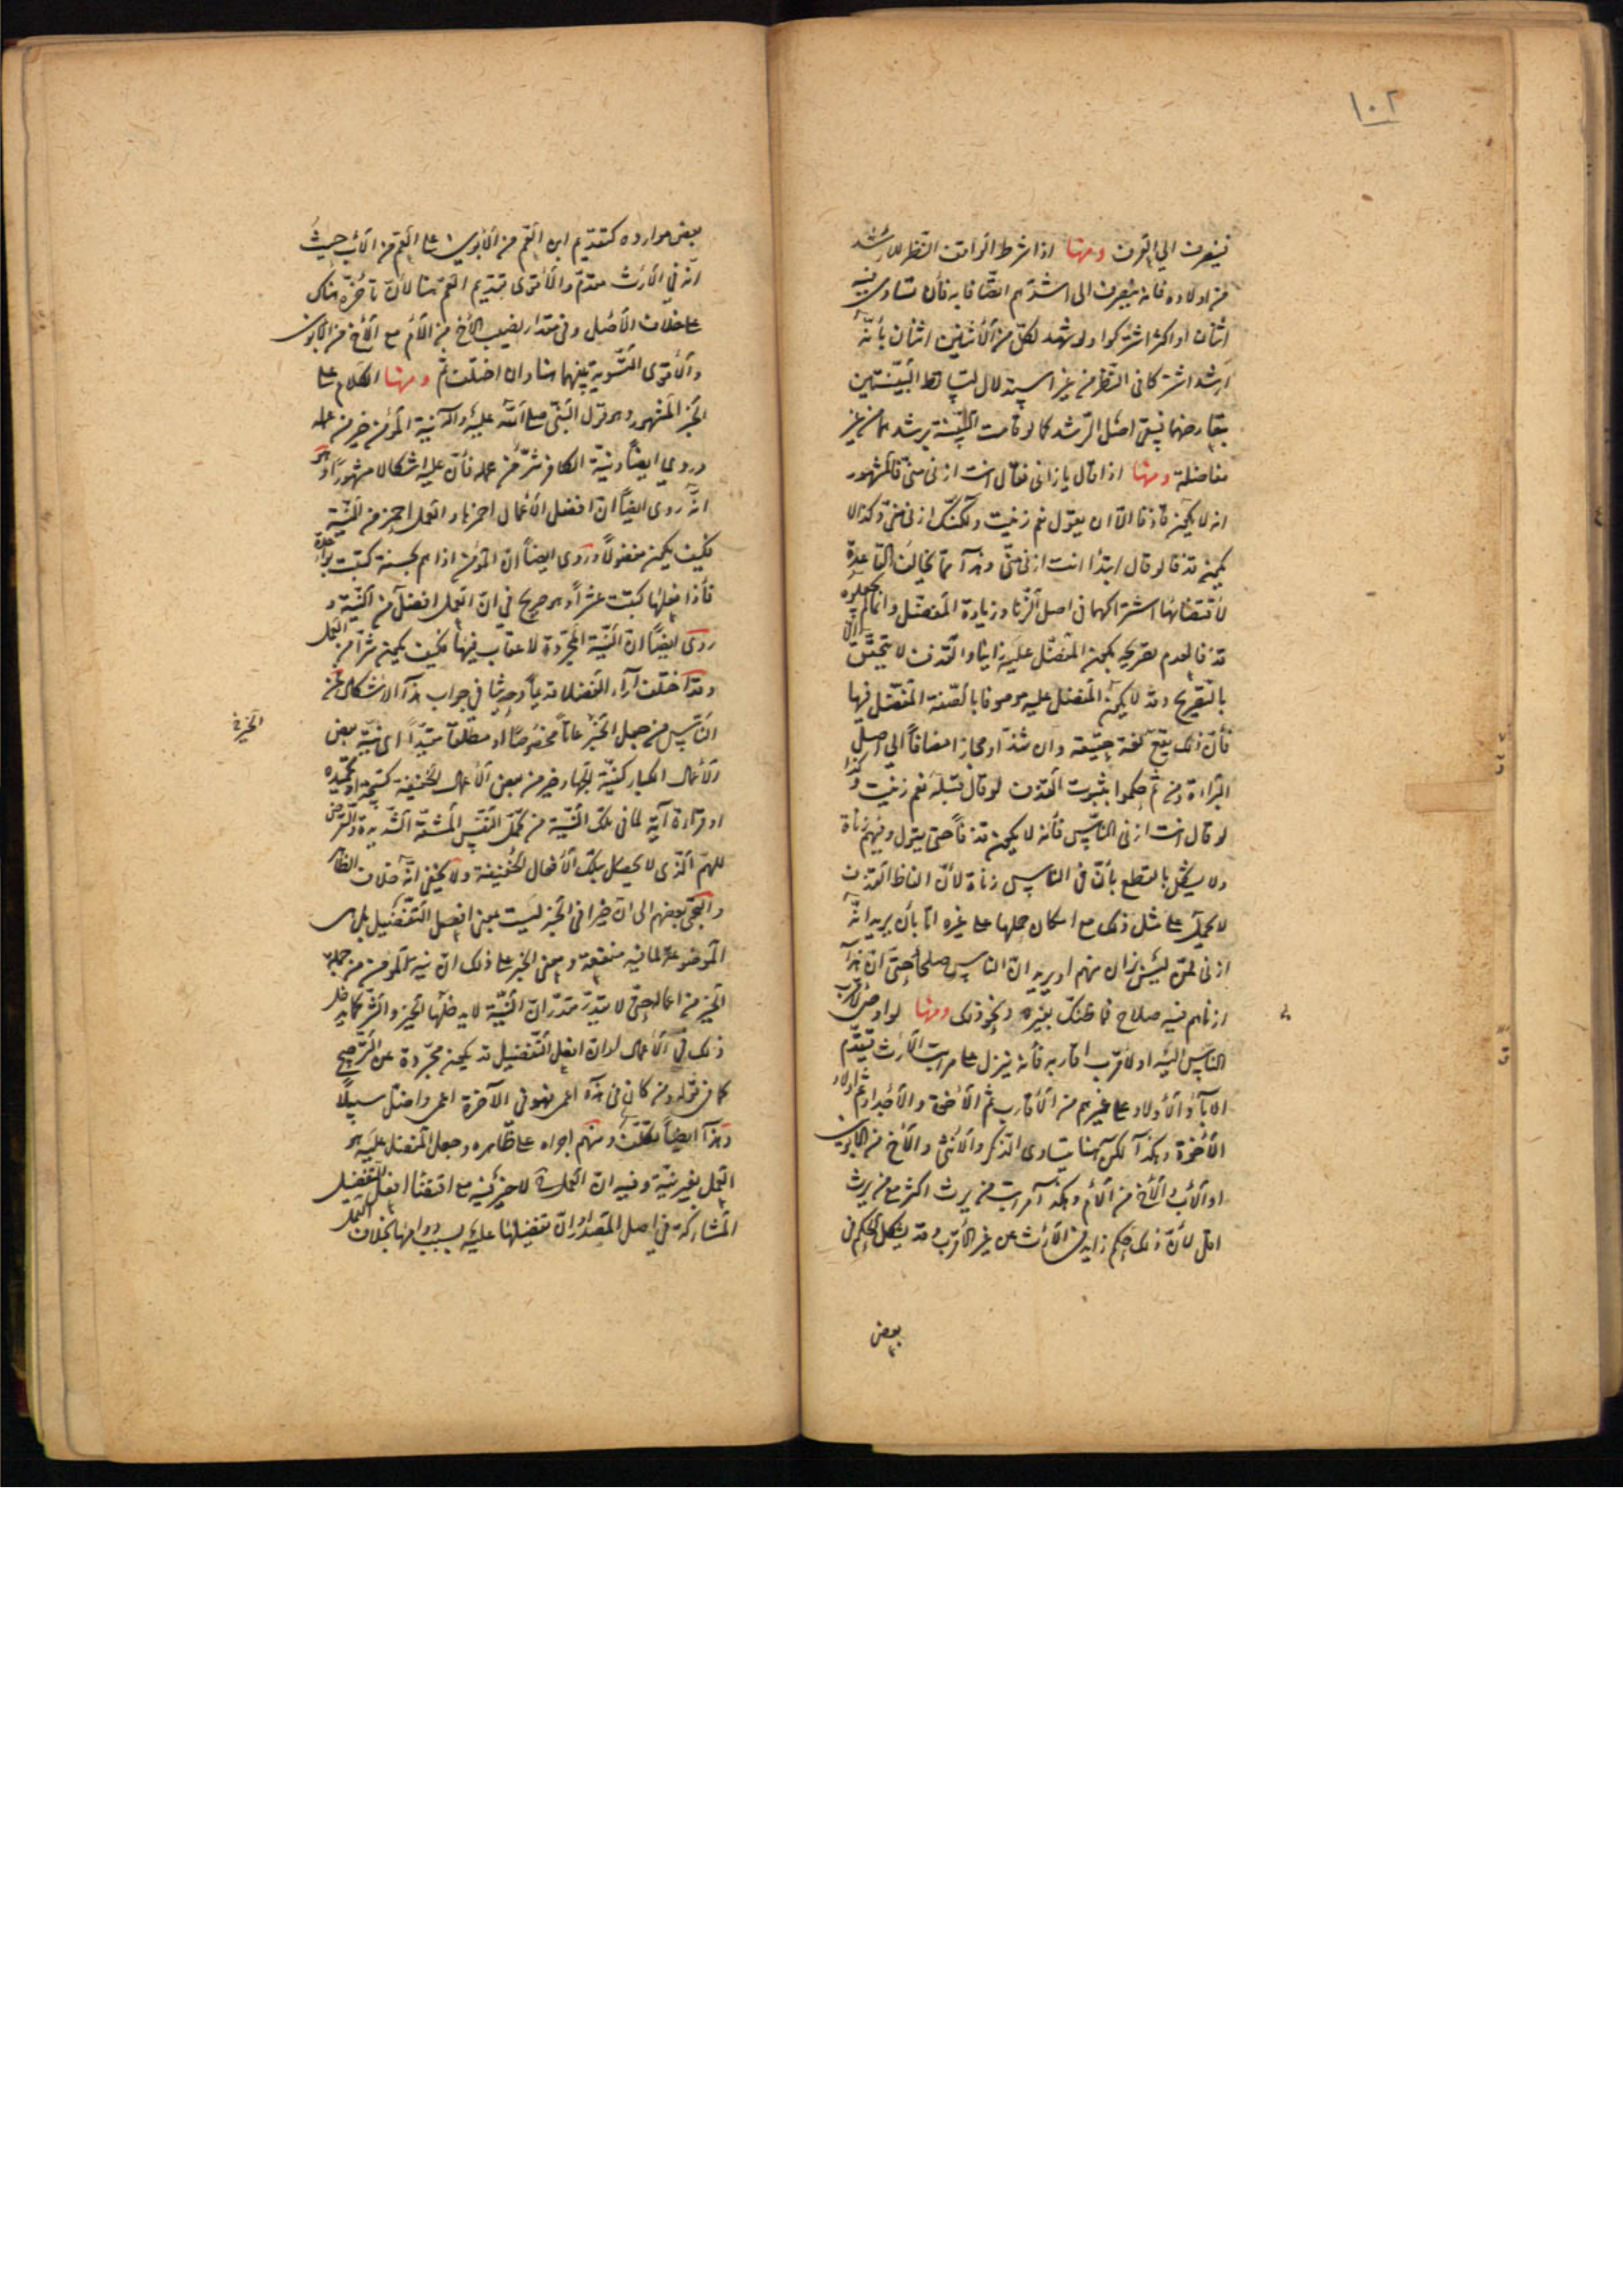 ١٠٢
فينصرف الى العرف ومنها اذا شرط الواقف النظر للأرشد
من اولاده فانه ينصرف الى اشدّهم اتصافا به فأن تساوى فيه
اثنان او اكثر اشتركوا ولو شهد لكلّ من الأثنين اثنان بأنّه
أرشد اشتركا فى النظر من غير استقلال لتساقط البيّنتين
بتعارضهما فيبقى اصل الرّشد كما لو قامت البيّنة برشدهما من غير
مفاضلة ومنها اذا قال يا زانى فقال انت ازنى منّى فالمشهور
انه لا يكون قاذفا الّا ان يقول نعم زنيت ولكنّك ازنى منّى وكذا لا
يكون قذفا لو قال ابتدأ انت ازنى منّى وهذا ممّا يخالف القاعدة
لأقتضائها اشتراكهما فى اصل الزّنا وزيادة المفضّل وانما لم يجعلوه
قذفا لعدم تصريحه بكون المفضّل عليه زانيا والقذف لا يتحقّق الّا
بالتّصريح وقد لا يكون المفضّل عليه موصوفا بالصّفة المفضّل فيها
فأنّ ذلك يقع لغة حقيقة وان شذّ او مجازا مضافاً الى اصل
البراءة ومن ثمّ حكموا بثبوت القذف لو قال قبله نعم زنيت وكذا
لو قال انت ازنى النّاس فأنه لا يكون قذفاً حتى يقول وفيهم زناة
ولا يشكل بالقطع بأنّ فى الناس زناة لأنّ الفاظ القذف
لا تحمل على مثل ذلك مع امكان حملها على غيره امّا بأن يريد انّه
ازنى لمن ليس بزان منهم او يريد انّ الناس صلحاء حتى انّ هذا
ازناهم فيه صلاح فما ظنّك بغيره ونحو ذلك ومنها لو اوصى لأقرب
النّاس اليه او لأقرب اقاربه فأنه ينزل على مراتب الأرث فيقدّم
الاباء والأولاد على غيرهم من الأقارب ثم الأخوة والأجداد ثم اولاد
الأخوة وهكذا لكن هنا يتساوى الذّكر والأنثى والأخ من الأبوين
او الأب والأخ من الأم وهكذا مراتب من يرث اكثر مع من يرث
اقل لأنّ ذلك حكم زايد فى الأرث عن غير الأقرب وقد يشكل الحكم فى
بعض
بعض موارده كتقديم ابن العم من الأبوين على العم من الأب حيث
انّه فى الأرث مقدّم والأقوى تقديم العم هنا لأنّ تأخرّه هناك
على خلاف الأصل وفى مقدار نصيب الأخ من الأم مع الأخ من الأبوين
والأقوى التّسوية بينهما هنا وان اختلف ثمّ ومنها الكلام على
الخبر المشهور وهو قول النبّى صلى اللّه عليه وآله نية المؤمن خير من عمله
وروى ايضاً ونيّة الكافر شرّ من عمله فأنّ عليه اشكالا مشهوراً وهو
انّه روى ايضاً انّ افضل الأعمال احمزها والعمل احمز من النّية
فكيف يكون مفضولاً وروى ايضاً انّ المؤمن اذا هم بحسنة كتبت بواحدة
فأذا فعلها كتبت عشراً وهو صريح فى انّ العمل افضل من النّية و
روى ايضاً انّ النّيّة المجرّدة لا عقاب فيها فكيف يكون شرّا من العمل
وقد اختلف آراء الفضلا قديماً وحديثا فى جواب هذا الاشكال فمن
النّاس من جعل الخبر عاماً مخصوصاً او مطلقاً مقيّداً اى نيّة بعض
الأعمال الكبار كنيّة الجهاد خير من بعض الأعمال الخفيفة كتسبيحة او تحميدة
او قراءة آية لما فى تلك النّية من تحمّل النّفس المشقّة الشّديدة والتعرّض
للهمّ الّذى لا يحصل بتلك الأفعال الخفيفة ولا يخفى انّه خلاف الظاهر
والتجى بعضهم الى انّ خيرا فى الخبر ليست بمعنى افعل التّفضيل بل هى
الموضوعة لما فيه منفعة ومعنى الخبر على ذلك انّ نية المؤمن من جملة
الخير من اعماله حتّى لا يقدّر مقدّر انّ النّيّة لا يدخلها الخير والشّر كما يدخل
ذلك فى الأعمال لو انّ افعل التّفضيل قد يكون مجرّدة عن التّرجيح
كما فى قوله ومن كان فى هذه اعمى فهو فى الآخرة اعمى واضل سبيلاً
وهذا ايضاً تكلّف ومنهم اجراه على ظّاهره وجعل المفضل عليه هو
العمل بغير نيّة وفيه ان العمل لا خير فيه مع اقتضاء افعل التّفضيل
المشاركة فى اصل المقصد او انّ تفضيلها عليه بسبب دوامها بخلاف العمل
الخير